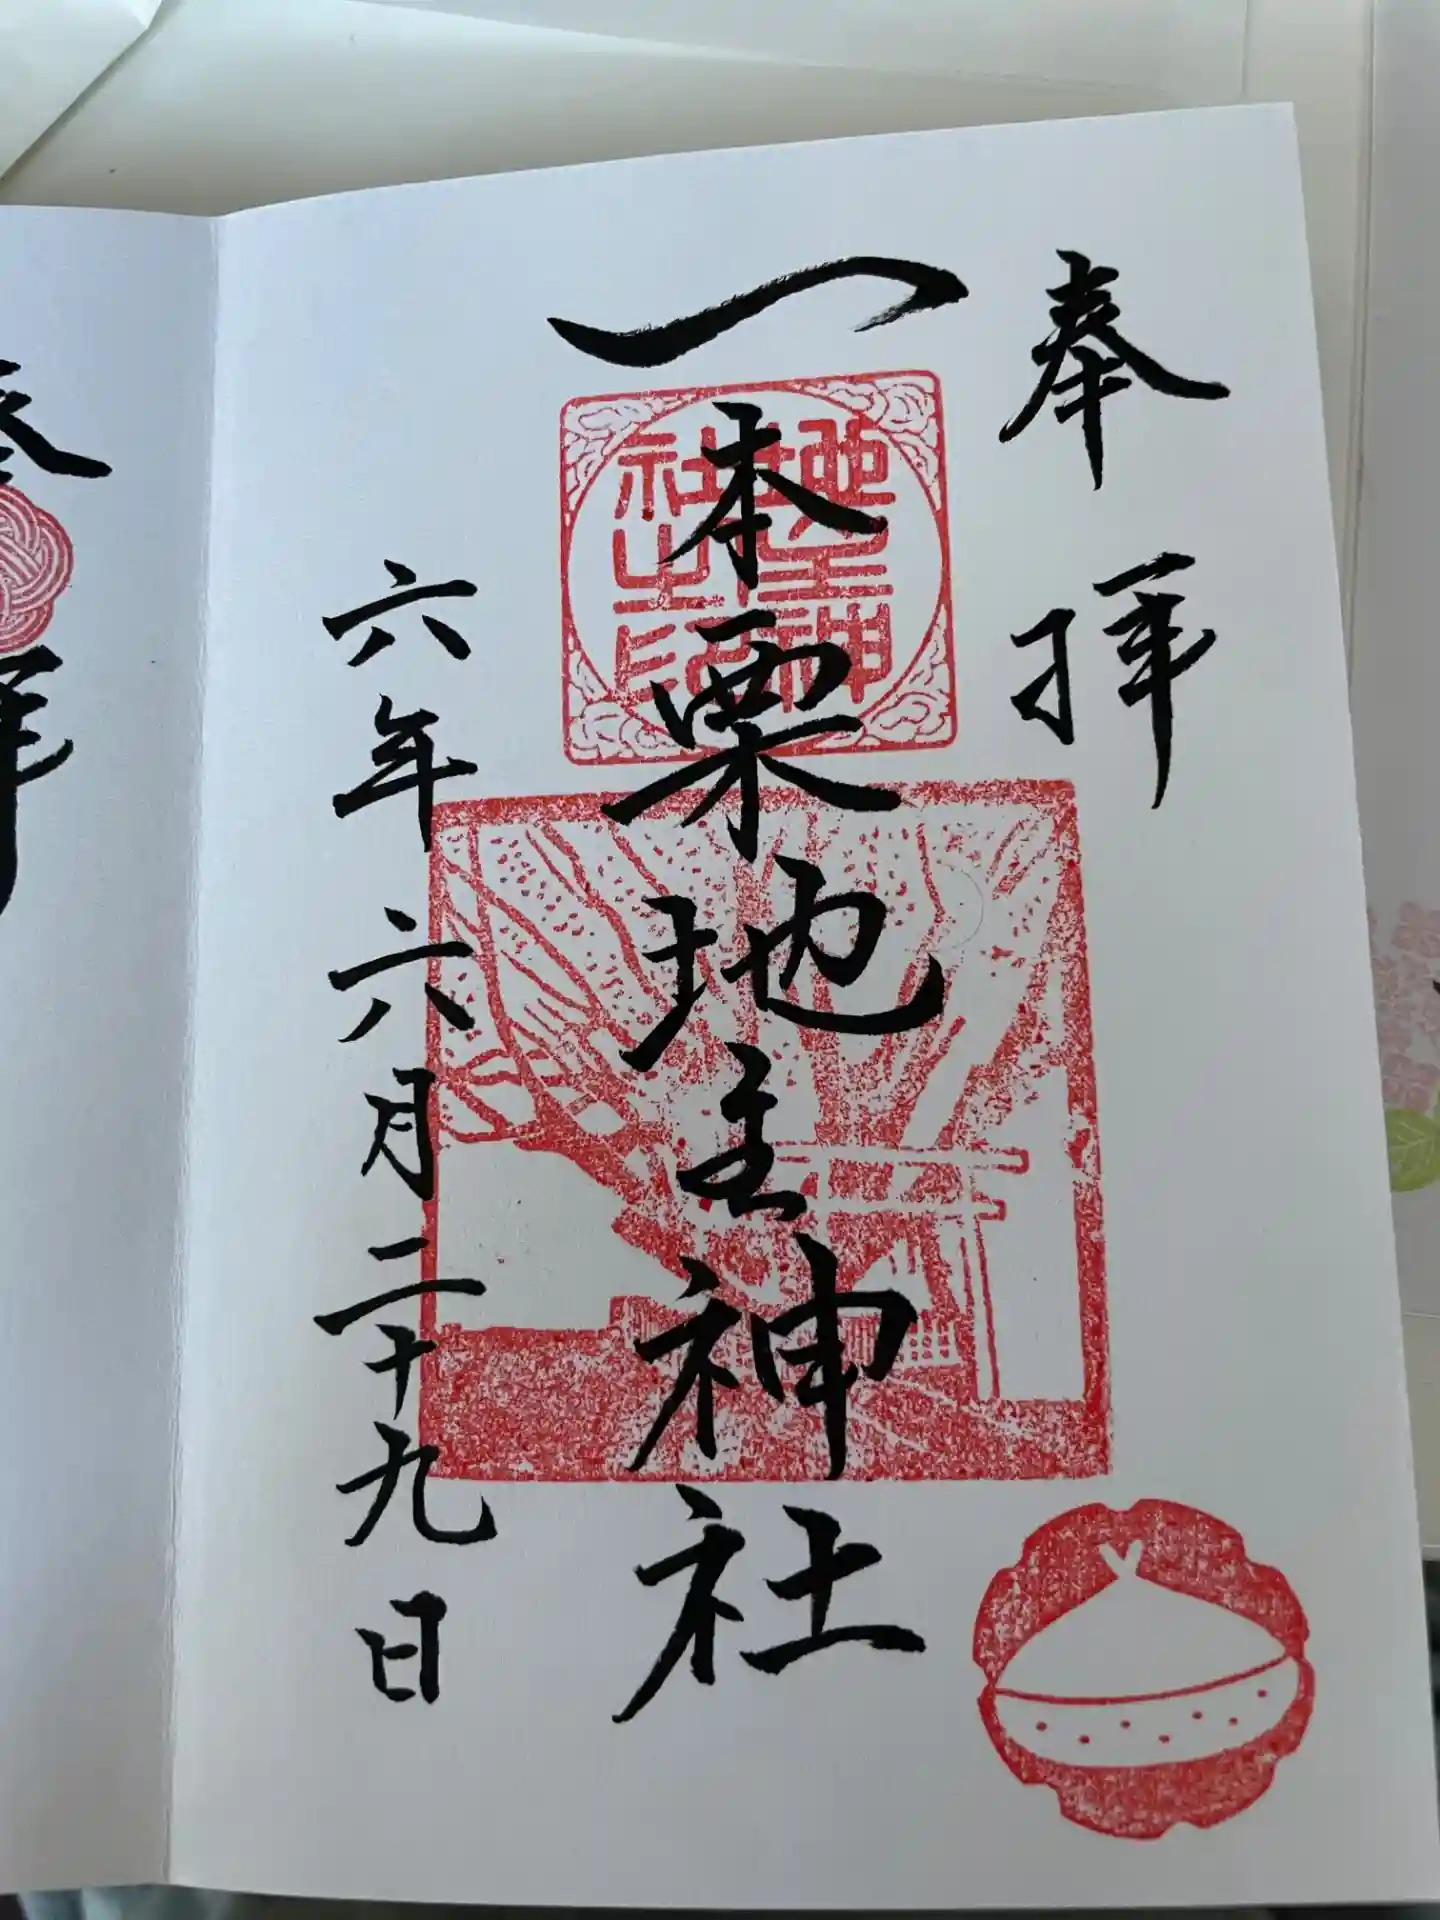 奉拝
一本栗地主神社
地主神社之印
六年六月二十九日
奉拝